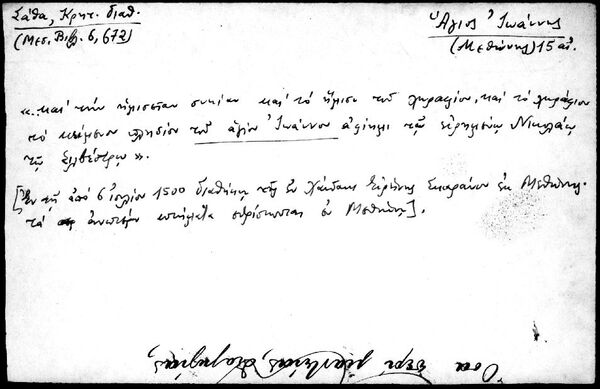 Σάθα, Κρητ. διαθ.
(Μεσ. Βιβλ. 6, 672)
Ἅγιος Ἰωάννης
(Μεθώνης) 15 αἰ.
«..καὶ τὴν ἡμισείαν συκίαν καὶ τὸ ἥμισυ τοῦ χωραφίου, καὶ τὸ χωράφιον
τὸ κείμενον πλησίον τοῦ ἁγίου Ἰωάννου ἀφίημι τῷ εἰρημένῳ Νικολάῳ
τῷ Σιλβέστρῳ».
[Ἐν τῇ ἀπὸ 6 Ἰουλίου 1500 διαθήκῃ τῆς ἐν Χάνδακι Εἰρήνης ἐκ Μεθώνης.
τὰ ἀνωτέρω κτήματα εὑρίσκονται ἐν Μεθώνῃ].
Ὅσα περὶ